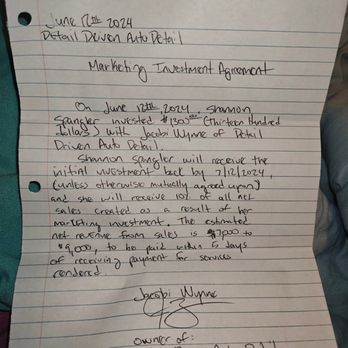 June 12th 2024
Detail Driven Auto Detail
Marketing Investment Agreement
On June 12th, 2024, Shannon
Spangler invested $1300.00 (Thirteen hundred
dollars) with Jacobi Wynne of Detail
Driven Auto Detail.
Shannon Spangler will receive the
initial investment back by 7/12/2024,
(unless otherwise mutually agreed upon)
and she will receive 10% of all net
sales created as a result of her
marketing investment. The estimated
net revenue from sales is $7,000 to
$9,000, to be paid within 5 days
of receiving payment for services
rendered.
Jacobi Wynne
owner of: